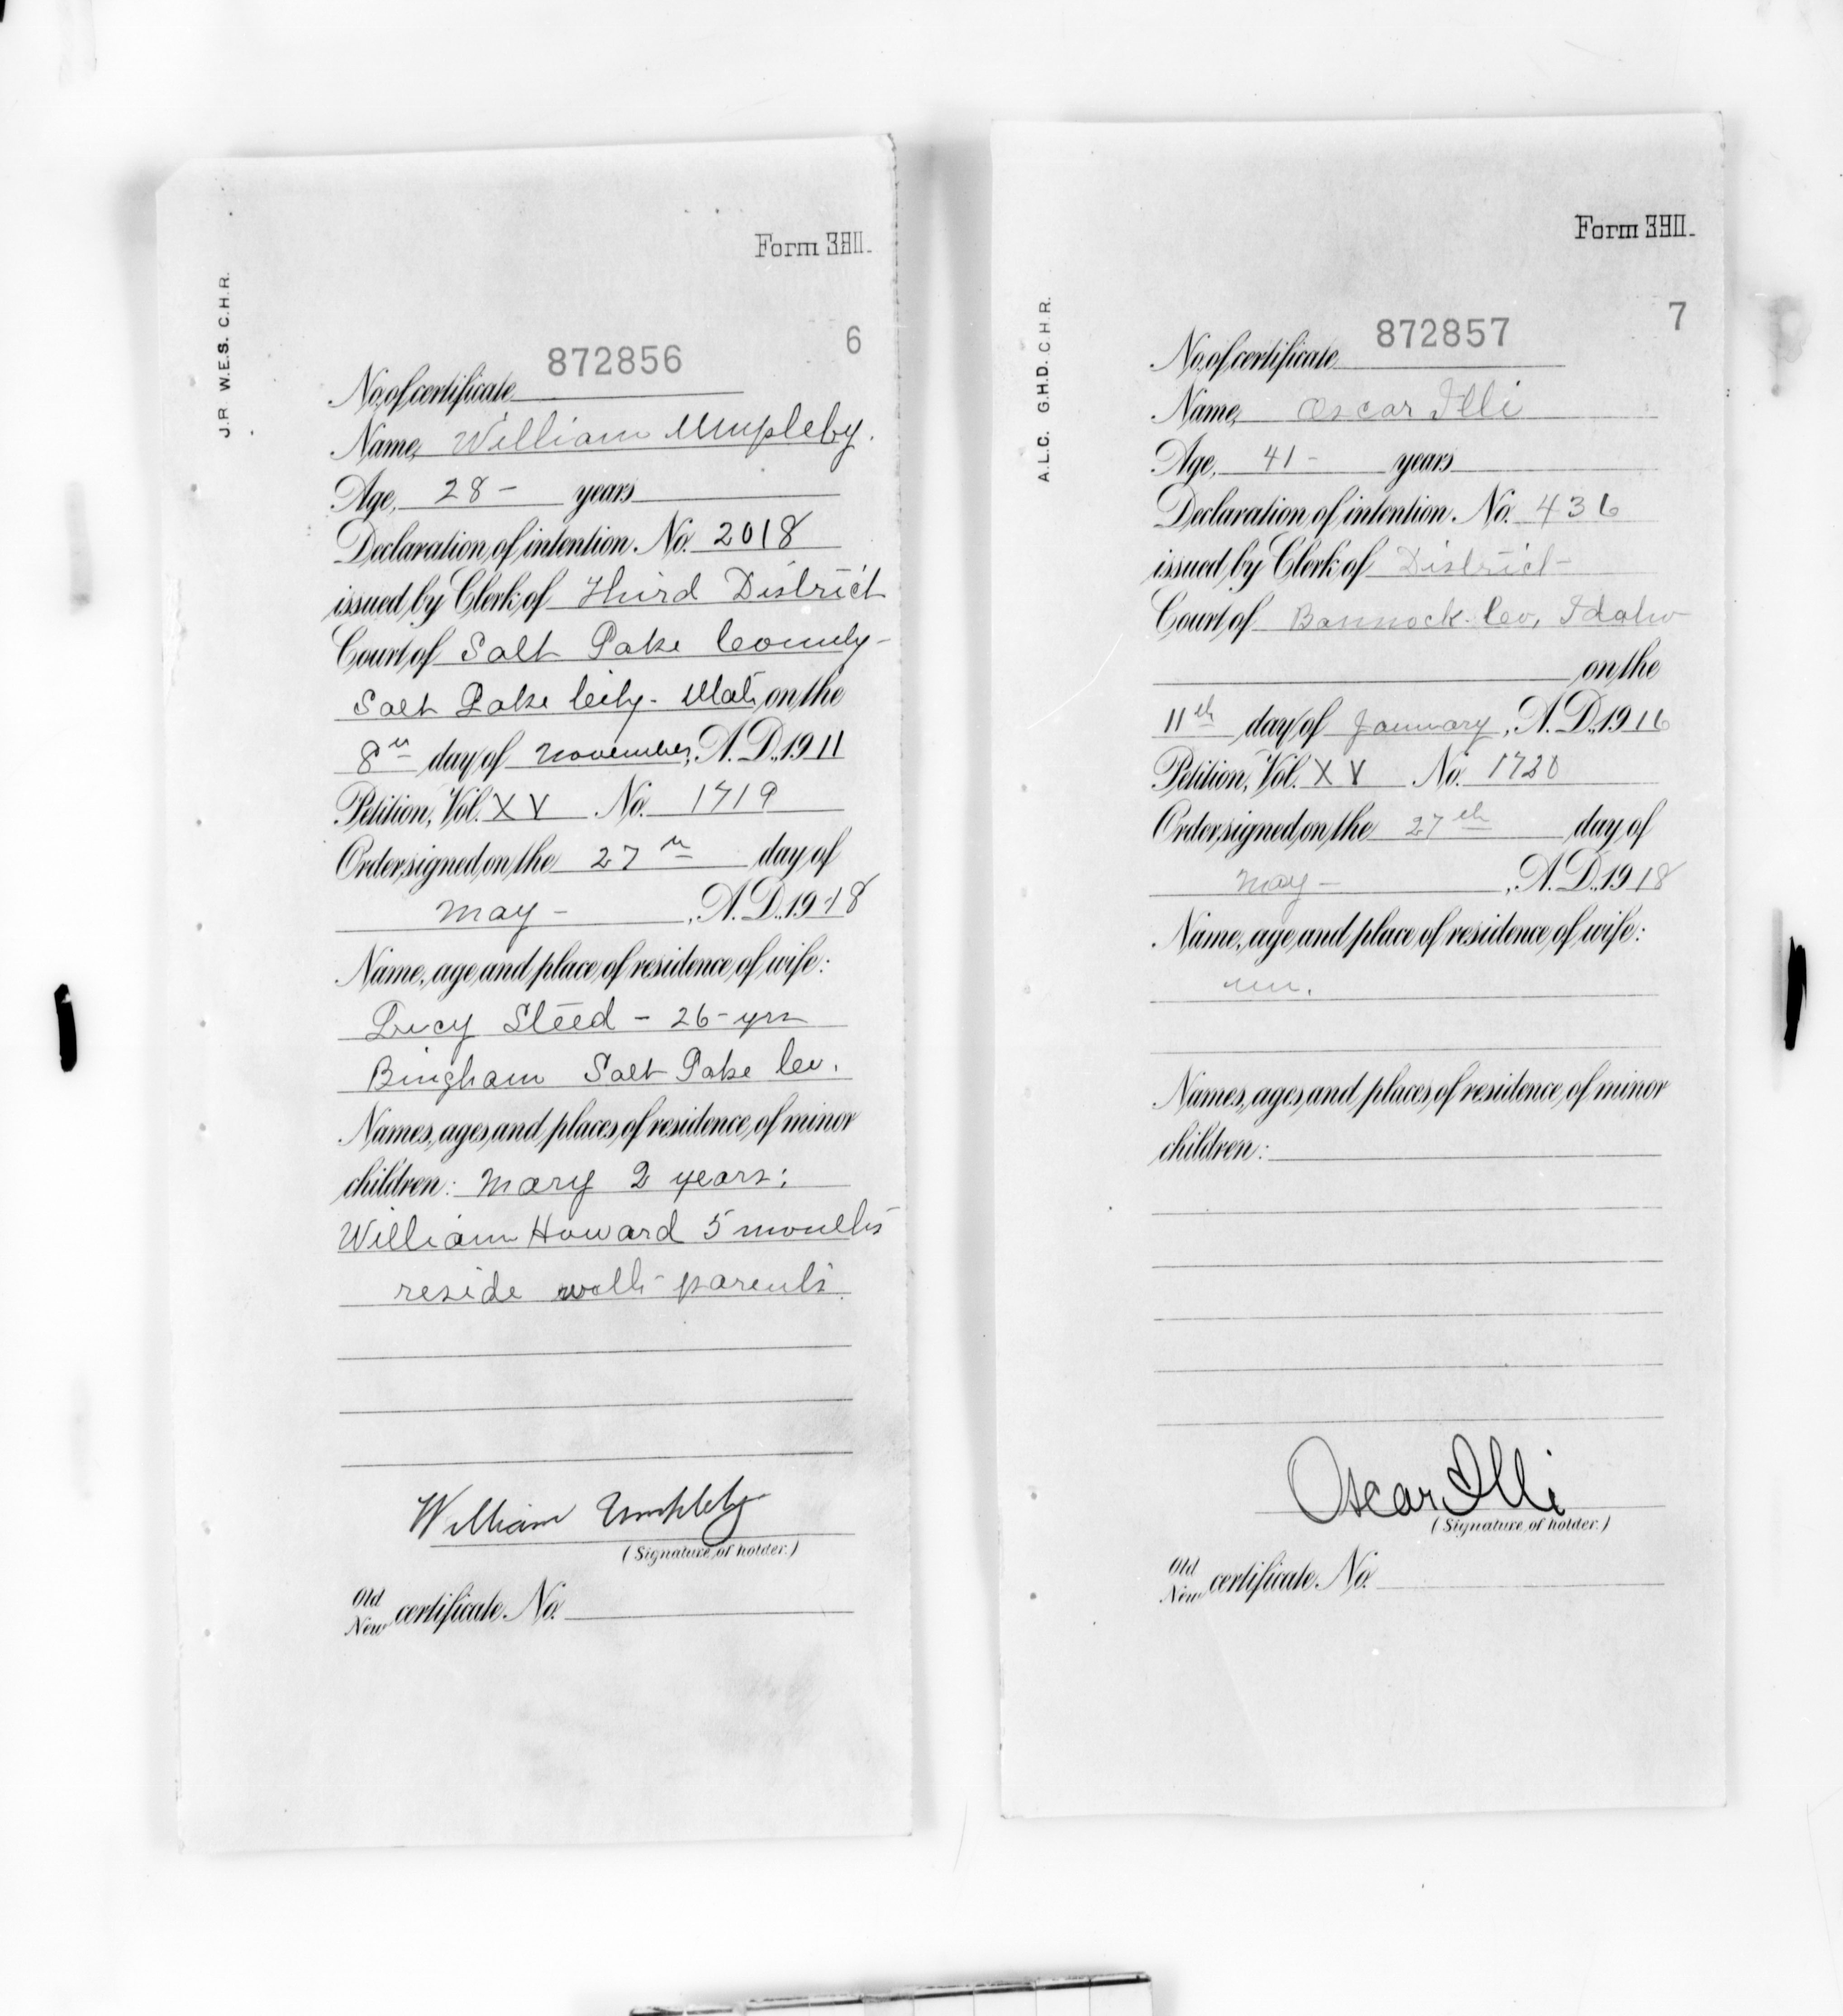 Form 3911.
J.R. W.E.S. C.H.R.
6
872856
No. of certificate
Name, William Umpleby.
Age, 28 - years
Declaration of intention No. 2018
issued by Clerk of Third District
Court of Salt Lake County -
Salt Lake City - Utah on the
8th day of November, A.D. 1911
Petition, Vol. XV No. 1719
Order signed on the 27th day of
May - , A.D. 1918
Name, age and place of residence of wife:
Lucy Steed - 26 - yrs
Bingham Salt Lake Co.
Names, ages and places of residence of minor
children: Mary 2 years;
William Howard 5 months
reside with parents.
William Umpleby
(Signature of holder.)
Old
New certificate No.
A.L.C. G.H.D. C.H.R.
7
872857
No. of certificate
Name, Oscar Illi
Age, 41 - years
Declaration of intention No. 436
issued by Clerk of District -
Court of Bannock Co, Idaho
on the
11th day of January, A.D. 1916
Petition, Vol. XV No. 1720
Order signed on the 27th day of
May - , A.D. 1918
Name, age and place of residence of wife:
Names, ages and places of residence of minor
children:
Oscar Illi
(Signature of holder.)
Old
New certificate No.